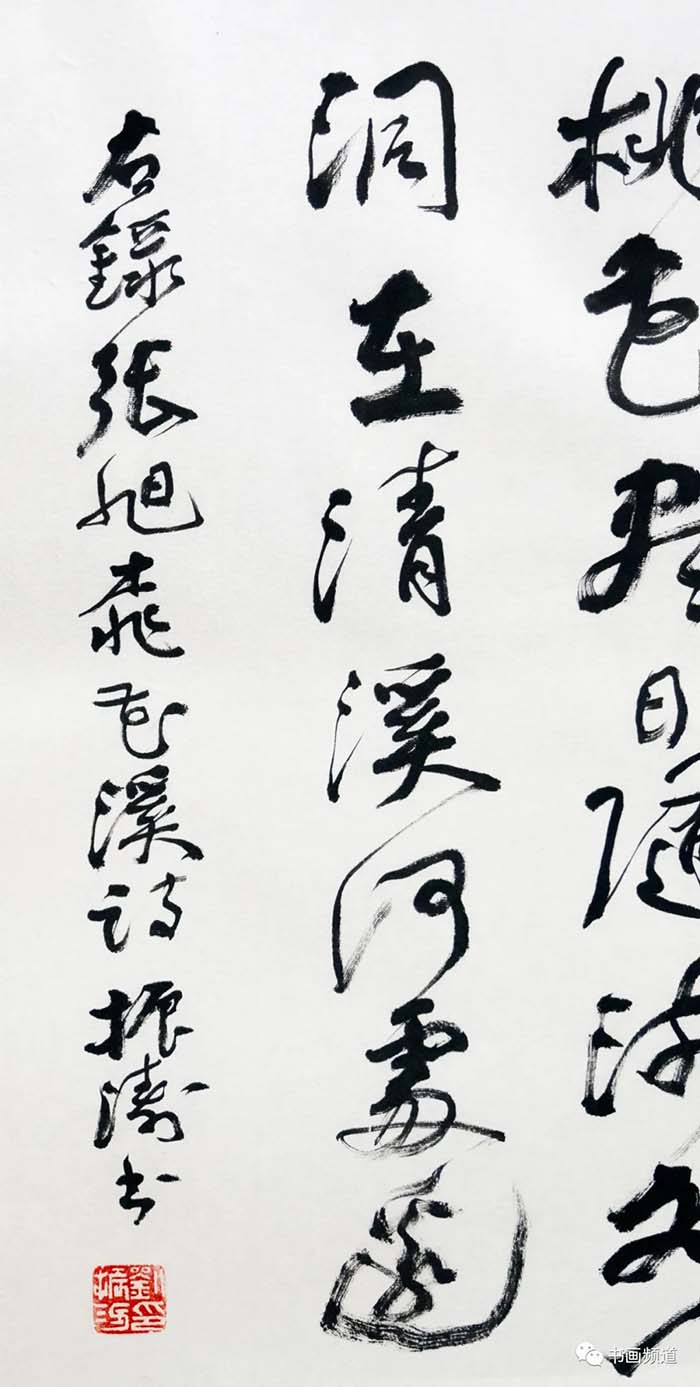 桃花盡日隨流水
洞在清溪何處邊
右錄張旭桃花溪詩振濤書
劉振濤印
书画频道